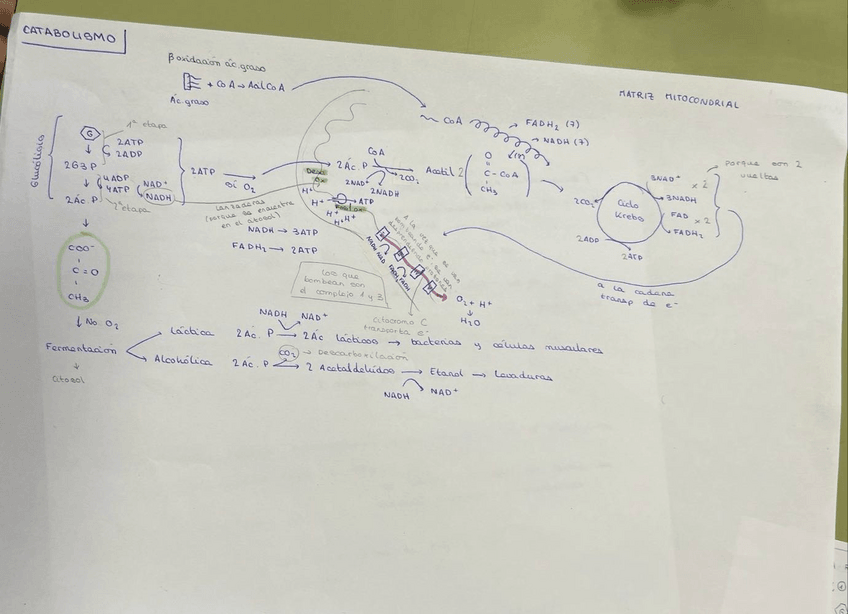 CATABOLISMO
β oxidación ác. graso
+ CoA → Acil CoA
Ác. graso
MATRIZ MITOCONDRIAL
CoA
FADH₂ (7)
NADH (7)
Glucólisis
1ª etapa
G
2ATP
2ADP
2G3P
4ADP
4ATP
NAD⁺
NADH
2 Ác. P
2ª etapa
2ATP
Sí O₂
Lanzaderas
(porque se encuentra
en el citosol)
NADH → 3ATP
FADH₂ → 2ATP
H⁺
H⁺
ATP
H⁺
H⁺
H⁺
CoA
2 Ác. P
2CO₂
2NAD⁺
2NADH
Acetil 2
O
C - CoA
CH₃
2CO₂
Ciclo
Krebs
3NAD⁺
x 2
3NADH
FAD
x 2
FADH₂
2ADP
2ATP
porque son 2
vueltas
a la cadena
transp de e⁻
Los que
bombean son
el complejo 1 y 3
NADH NAD
FADH₂ FADH
O₂ + H⁺
H₂O
Citocromo C
transporta e⁻
COO⁻
C = O
CH₃
No O₂
Fermentación
Citosol
NADH NAD⁺
Láctica 2 Ác. P → 2 Ác lácticos → bacterias y células musculares
CO₂ → Descarboxilación
Alcohólica 2 Ác. P → 2 Acetaldehídos → Etanol → Levaduras
NADH NAD⁺